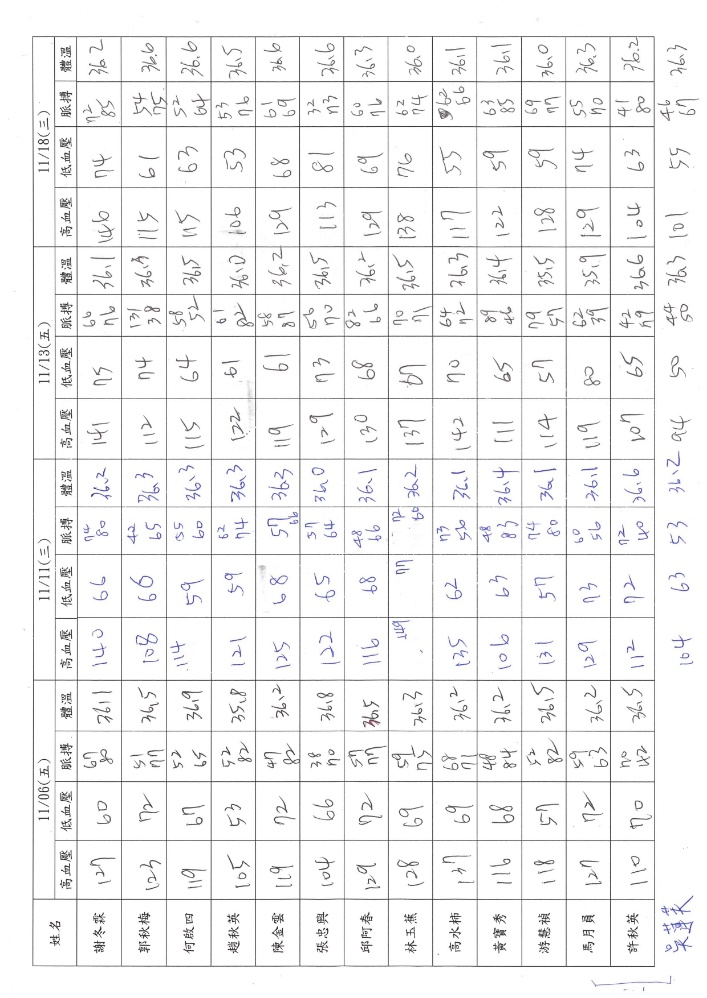 姓名 11/06(五) 11/11(三) 11/13(五) 11/18(三)
高血壓 低血壓 脈搏 體溫 高血壓 低血壓 脈搏 體溫 高血壓 低血壓 脈搏 體溫 高血壓 低血壓 脈搏 體溫
謝冬霖 127 60 67 80 36.1 140 66 74 80 36.2 141 75 66 76 36.1 146 74 72 85 36.2
郭秋梅 123 72 51 77 36.5 108 60 42 65 36.3 112 74 131 38 36.3 115 61 54 75 36.6
何啟四 119 67 52 65 36.9 114 59 55 60 36.3 115 64 58 52 36.5 115 63 52 64 36.6
趙秋英 105 53 52 82 35.8 121 59 62 74 36.3 122 61 61 82 36.0 106 53 53 76 36.5
陳金雲 119 72 47 82 36.2 125 68 57 66 36.3 119 61 58 87 36.2 129 68 61 69 36.6
張忠興 104 66 38 70 36.8 122 65 57 64 36.0 129 73 56 70 36.5 113 81 32 73 36.6
邱阿春 129 72 57 77 36.5 116 68 48 66 36.1 130 68 82 66 36.2 129 69 60 76 36.3
林玉蕉 128 69 59 75 36.3 149 77 72 60 36.2 137 67 70 71 36.5 138 76 62 74 36.0
高水柿 137 69 68 71 36.2 135 62 73 50 36.1 142 70 64 72 36.3 117 55 62 66 36.1
黃寶秀 116 68 48 84 36.2 106 63 48 83 36.4 111 65 89 46 36.4 122 59 63 85 36.1
游慧禎 118 57 52 82 36.5 131 57 74 80 36.1 114 57 79 57 35.5 128 59 69 77 36.0
馬月員 127 72 59 63 36.2 129 73 60 56 36.1 119 80 62 39 35.9 129 74 55 70 36.3
許秋英 110 70 70 42 36.5 112 72 72 40 36.6 107 65 42 79 36.6 104 63 41 80 36.2
104 63 53 36.2 94 50 44 50 36.3 101 55 46 67 36.3